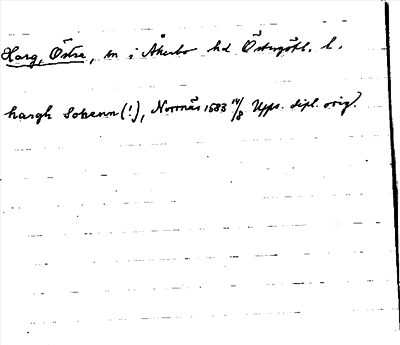 Harg, Östra, sn i Åkerbo hd Östergötl. l.
hargh Sokenn (!), Norrnäs 1683 14/8 Upps. dipl. orig.